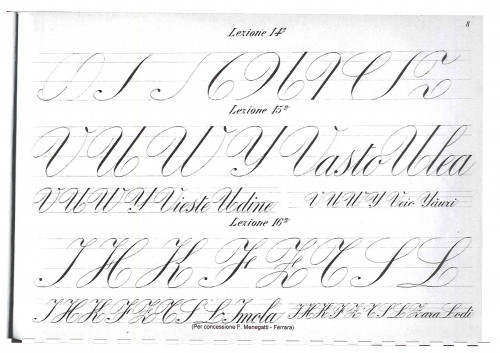 8
Lezione 14ª
Lezione 15ª
V U W Y Vasto Ulea
V U W Y Vieste Udine V U W Y Veio Yùnxi
Lezione 16ª
I H K F Z T S L
I H K F Z T S L Imola I H K F Z T S L Zara Lodi
(Per concessione F. Menegatti - Ferrara)